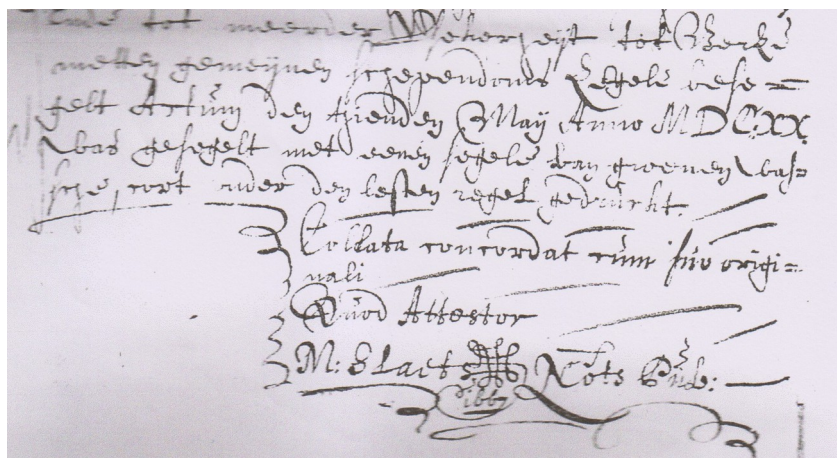 Ende tot meerder Sekerheyt dese
metten gemeynen schependoms segele bese=
gelt Actum den thienden May Anno MDCXX
was gesegelt met eenen segele van groenen was=
sche, cort onder den lesten regel gedruckt.
Collata concordat cum suo origi=
nali
Quod Attestor
M: Nots Pub: